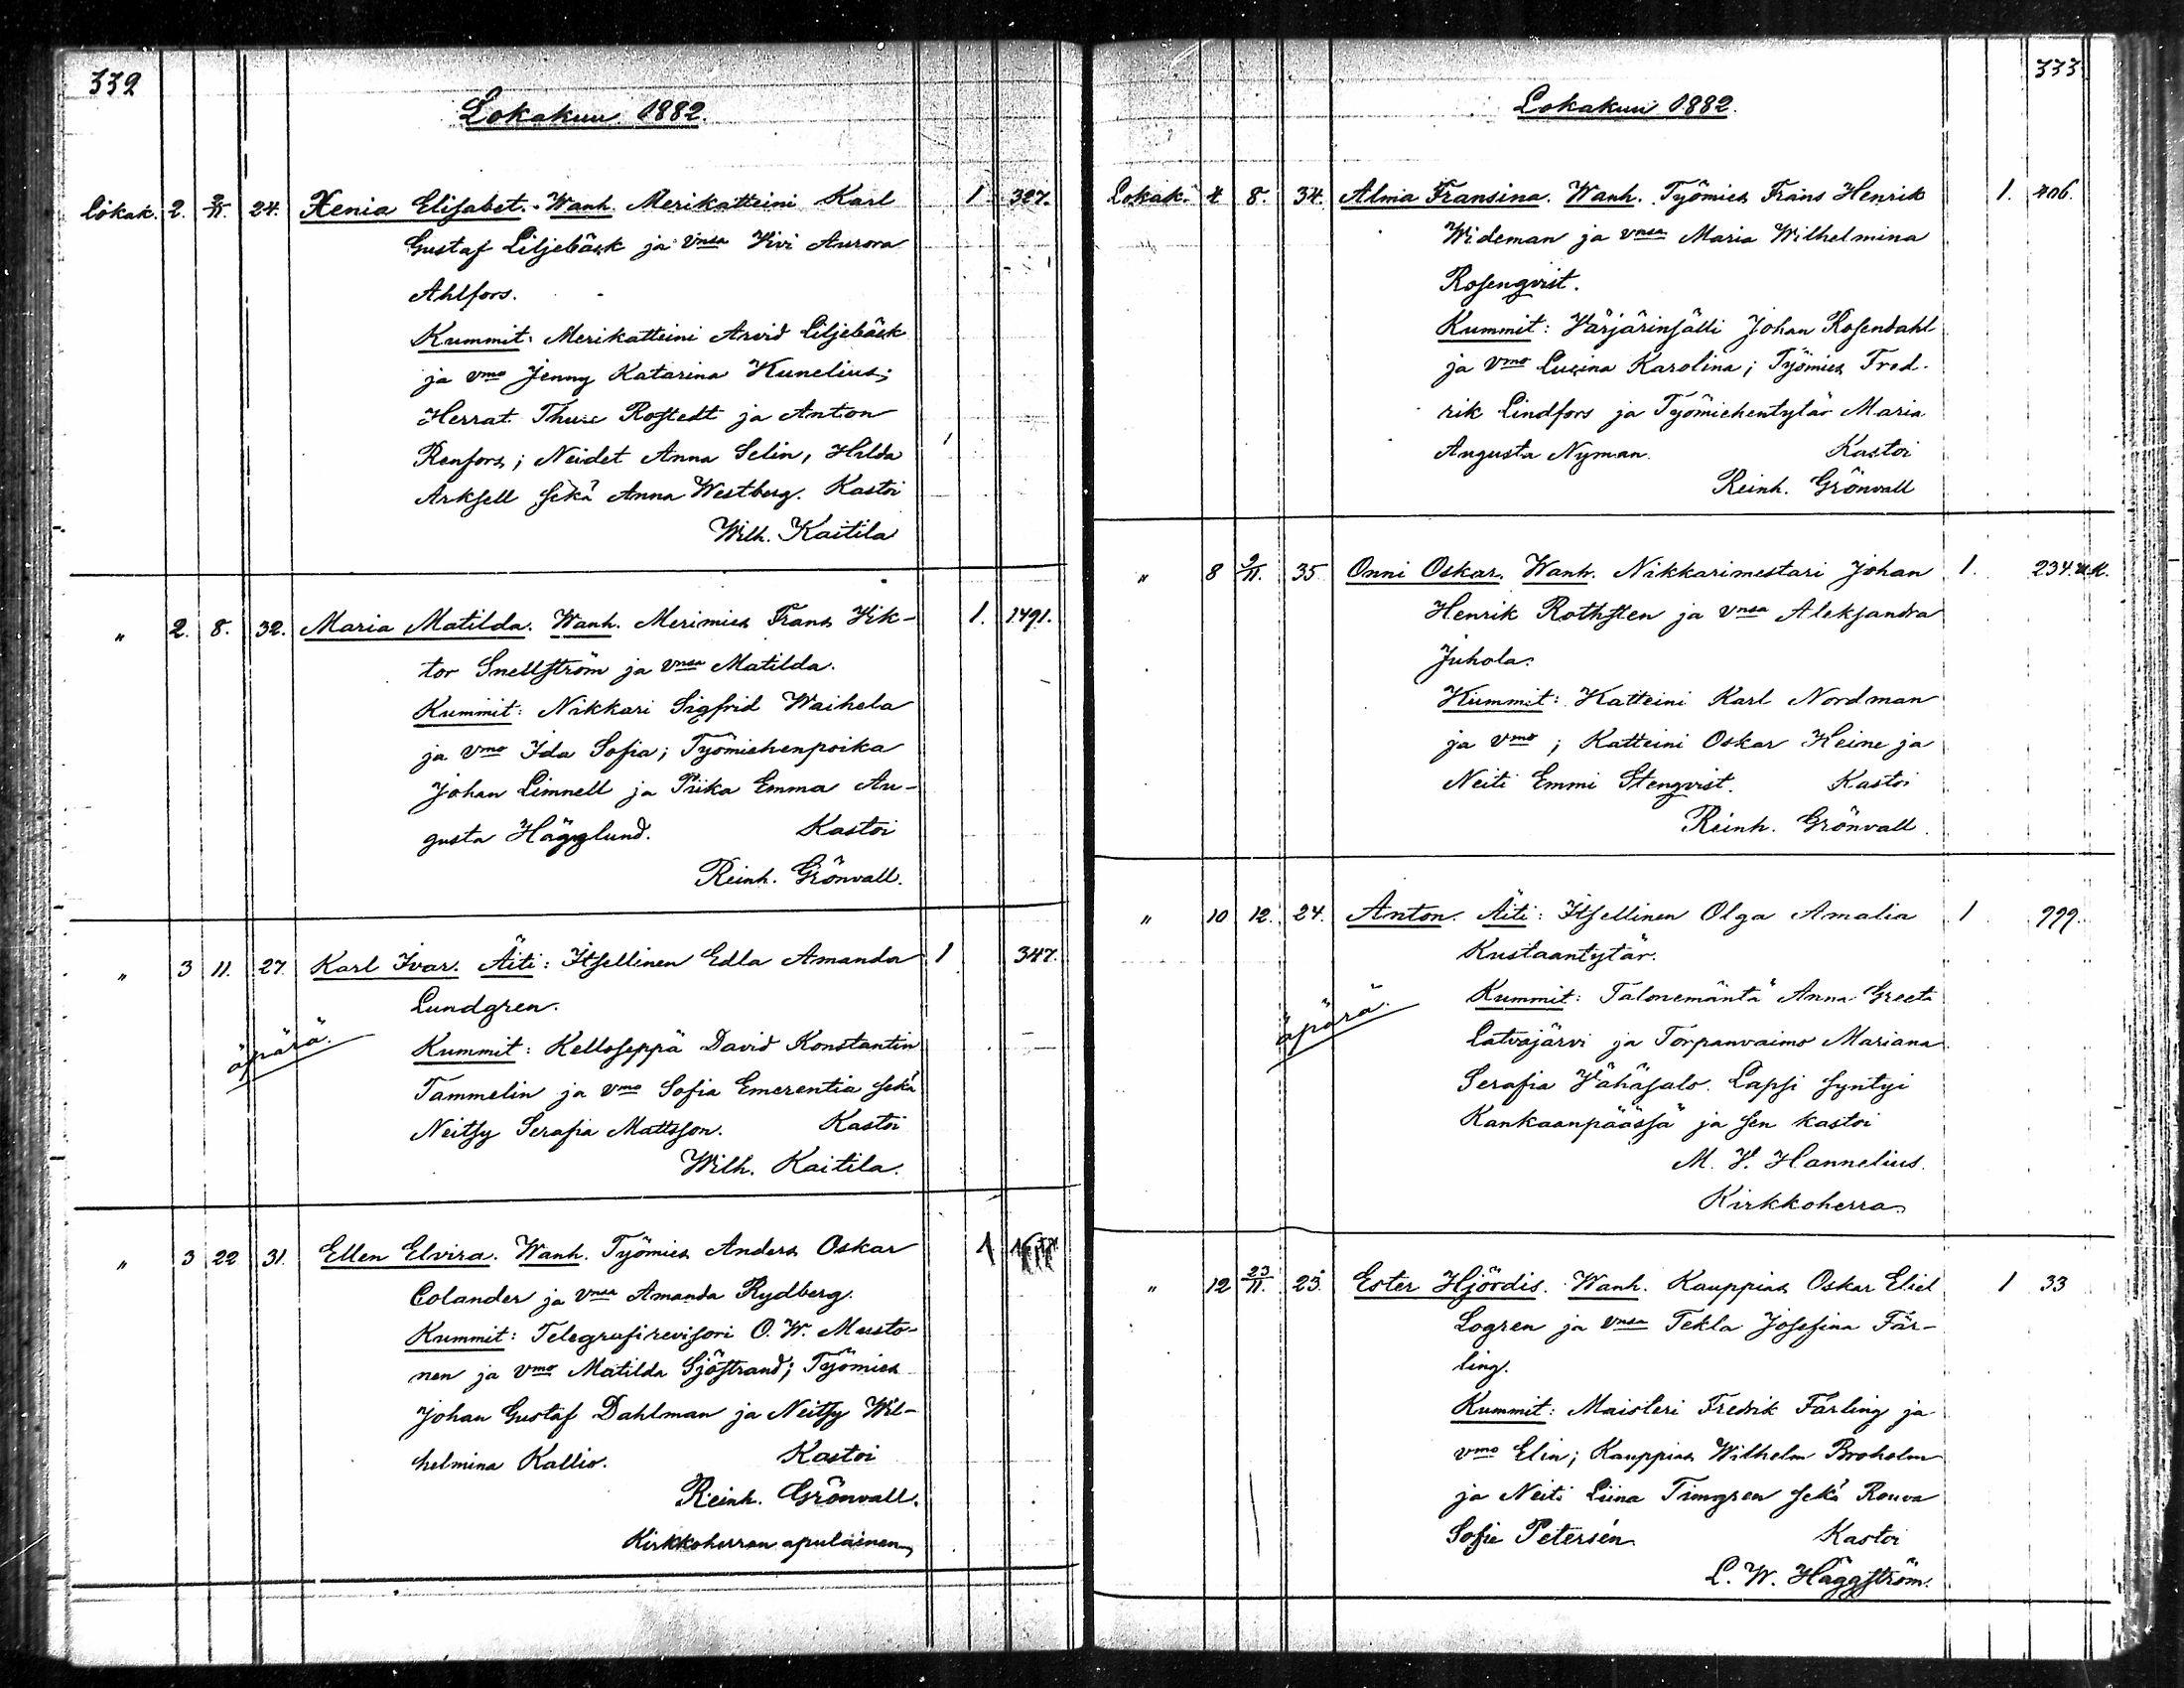 332
Lokakuu 1882.
Lokak. 2. 2/11. 24. Xenia Elisabet. Wanh. Merikatteini Karl 1 327.
Gustaf Liljebäck ja vnsa Vivi Aurora
Ahlfors.
Kummit: Merikatteini Arvid Liljebäck
ja vmo Jenny Katarina Kunelius;
Herrat Thure Rostedt ja Anton
Renfors; Neidet Anna Selin, Hilda
Arksell sekä Anna Westberg. Kastoi
Wilh. Kaitila
" 2. 8. 32. Maria Matilda. Wanh. Merimies Frans Vik- 1. 1491.
tor Snellström ja vnsa Matilda.
Kummit: Nikkari Sigfrid Waihela
ja vmo Ida Sofia; Työmiehenpoika
Johan Limnell ja Piika Emma Au-
gusta Hägglund. Kastoi
Reinh. Grönvall.
" 3 11. 27. Karl Ivar. Äiti: Itsellinen Edla Amanda 1 347.
Lundgren.
äpärä.
Kummit: Kelloseppä David Konstantin
Tammelin ja vmo Sofia Emerentia sekä
Neitsy Serafia Mattsson. Kastoi
Wilh. Kaitila.
" 3 22 31. Ellen Elvira. Wanh. Työmies Anders Oskar 1
Colander ja vnsa Amanda Rydberg.
Kummit: Telegrafirevisori O. W. Musto-
nen ja vmo Matilda Sjöstrand; Työmies
Johan Gustaf Dahlman ja Neitsy Wil-
helmina Kallio. Kastoi
Reinh. Grönvall.
Kirkkoherran apulainen
333
Lokakuu 1882.
Lokak. 4 8. 34. Alma Fransina. Wanh. Työmies Frans Henrik 1. 406.
Wideman ja vnsa Maria Wilhelmina
Rosenqvist.
Kummit: Värjärinsälli Johan Rosendahl
ja vmo Lusina Karolina; Työmies Fred-
rik Lindfors ja Työmiehentytär Maria
Augusta Nyman. Kastoi
Reinh. Grönvall
" 8 9/11. 35 Onni Oskar. Wanh. Nikkarimestari Johan 1. 234.u.k.
Henrik Rothsten ja vnsa Aleksandra
Juhola.
Kummit: Katteini Karl Nordman
ja vmo; Katteini Oskar Heine ja
Neiti Emmi Stenqvist. Kastoi
Reinh. Grönvall.
" 10 12. 24. Anton. Äiti: Itsellinen Olga Amalia 1 999.
Kustaantytär.
äpärä.
Kummit: Talonemäntä Anna Greeta
Latvajärvi ja Torpanvaimo Mariana
Serafia Vähäsalo. Lapsi syntyi
Kankaanpäässä ja sen kastoi
M. V. Hannelius.
Kirkkoherra
" 12 23/11. 23. Ester Hjördis. Wanh. Kauppias Oskar Eliel 1 33
Logren ja vnsa Tekla Josefina Fär-
ling.
Kummit: Maisteri Fredrik Färling ja
vmo Elin; Kauppias Wilhelm Broholm
ja Neiti Liina Timgren sekä Rouva
Sofie Petersén. Kastoi
L. W. Häggström.